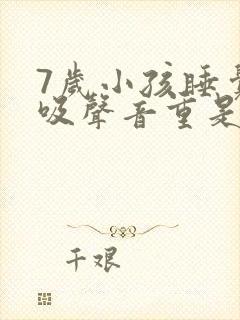 7歲小孩睡覺
吸聲音重是
千艰